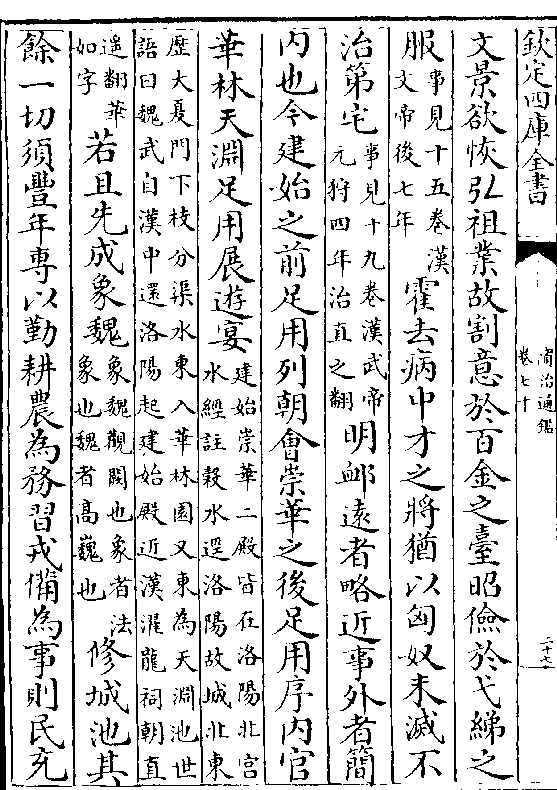 欽定四庫全書
資治通鑑
卷七十
二十七
文景欲恢弘祖業故割意於百金之臺昭儉於弋綈之
服
事見十五卷漢
文帝後七年
霍去病中才之將猶以匈奴未滅不
治第宅
事見十九卷漢武帝
元狩四年治直之翻
明䘏遠者略近事外者簡
內也今建始之前足用列朝會崇華之後足用序內官
華林天淵足用展遊宴
建始崇華二殿皆在洛陽北宮
水經註穀水逕洛陽故城北東
歷大夏門下枝分渠水東入華林園又東為天淵池世
語曰魏武自漢中還洛陽起建始殿近漢濯龍祠朝直
遥翻華
如字
若且先成象魏
象魏觀闕也象者法
象也魏者高巍也
修城池其
餘一切須豐年專以勤耕農為務習戎備為事則民充